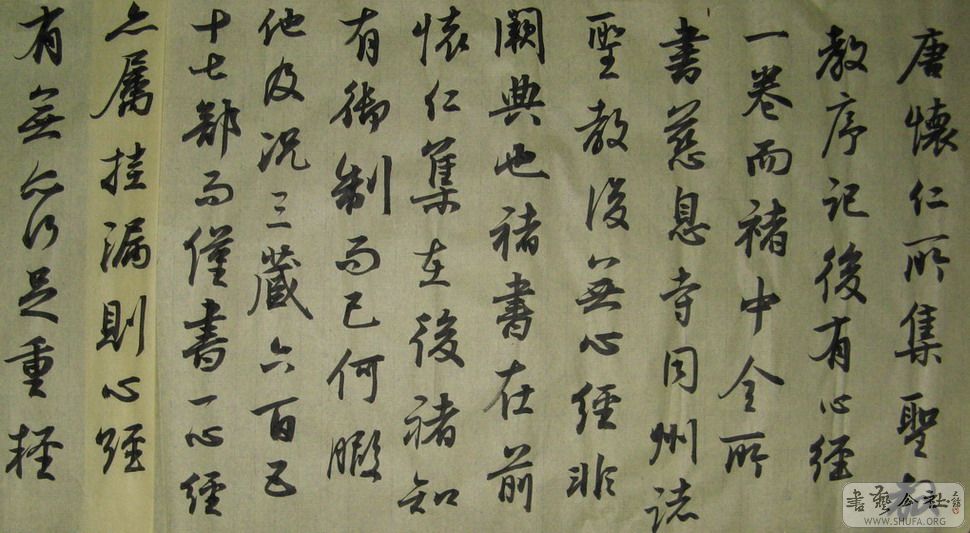 唐懷仁所集聖
教序記後有心經
一卷而褚中令所
書慈恩寺同州諸
聖教後無心經非
闕典也褚書在前
懷仁集在後褚知
有御制而已何暇
他及况三藏六百五
十七部而僅書一心經
亦屬挂漏則心經
有無亦何足重輕
書藝公社
WWW.SHUFA.ORG